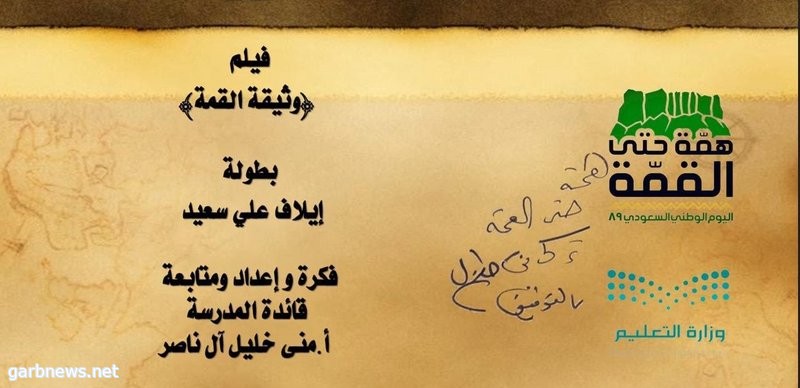 فيلم
﴿وثيقة القمة﴾
بطولة
إيلاف علي سعيد
فكرة و إعداد ومتابعة
قائدة المدرسة
أ.منى خليل آل ناصر
همّة حتى
القمّة
اليوم الوطني السعودي ٨٩
همة
حتى القمة
بالتوفيق
وزارة التعليم
garbnews.net